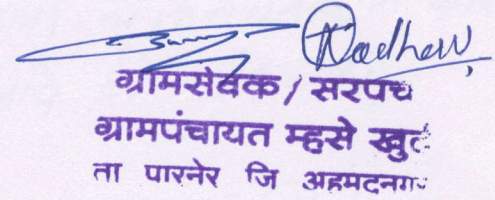 ग्रामसेवक / सरपंच
ग्रामपंचायत म्हसे खुर्द
ता पारनेर जि अहमदनगर